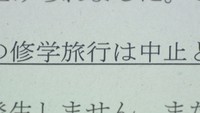 の修学旅行は中止と
発生しません。また